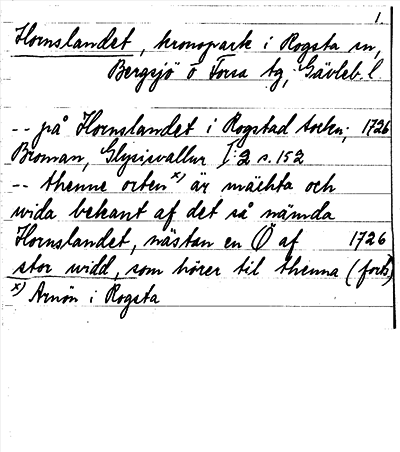 1.
Hornslandet, kronopark i Rogsta sn,
Bergsjö o Forsa tg, Gävleb. l.
-- på Hornslandet i Rogstad Sochn; 1726
Broman, Glysisvallur I: 2 s. 152
-- thenne orten x) är mächta och
wida bekant af det så nämda
Hornslandet, nästan en Ö af 1726
stor widd, som hörer til thenna (forts)
x) Arnön i Rogsta